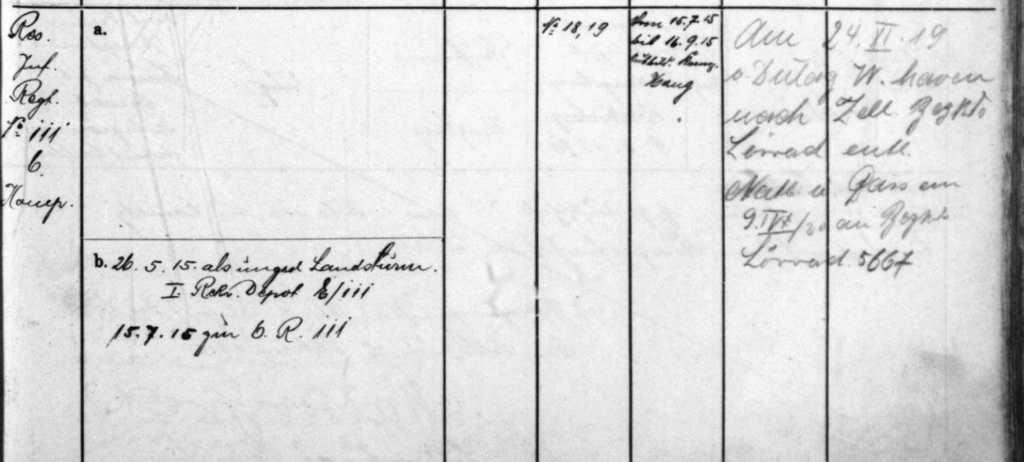 Res.
Inf.
Regt.
No 111
6.
Komp.
a.
b. 26. 5. 15. als unged Landsturm.
I Rekr. Depot E/111
15. 7. 15 zur 6. R. 111
No 18, 19
Vom 15.7.15
bis 16.9.15
Komp.
Haug
Am 24. XI. 19
v Dulag W. haven
nach Zell Bezkdo
Lörrach entl.
u Pass am
9. an Bezkdo
Lörrach 5667